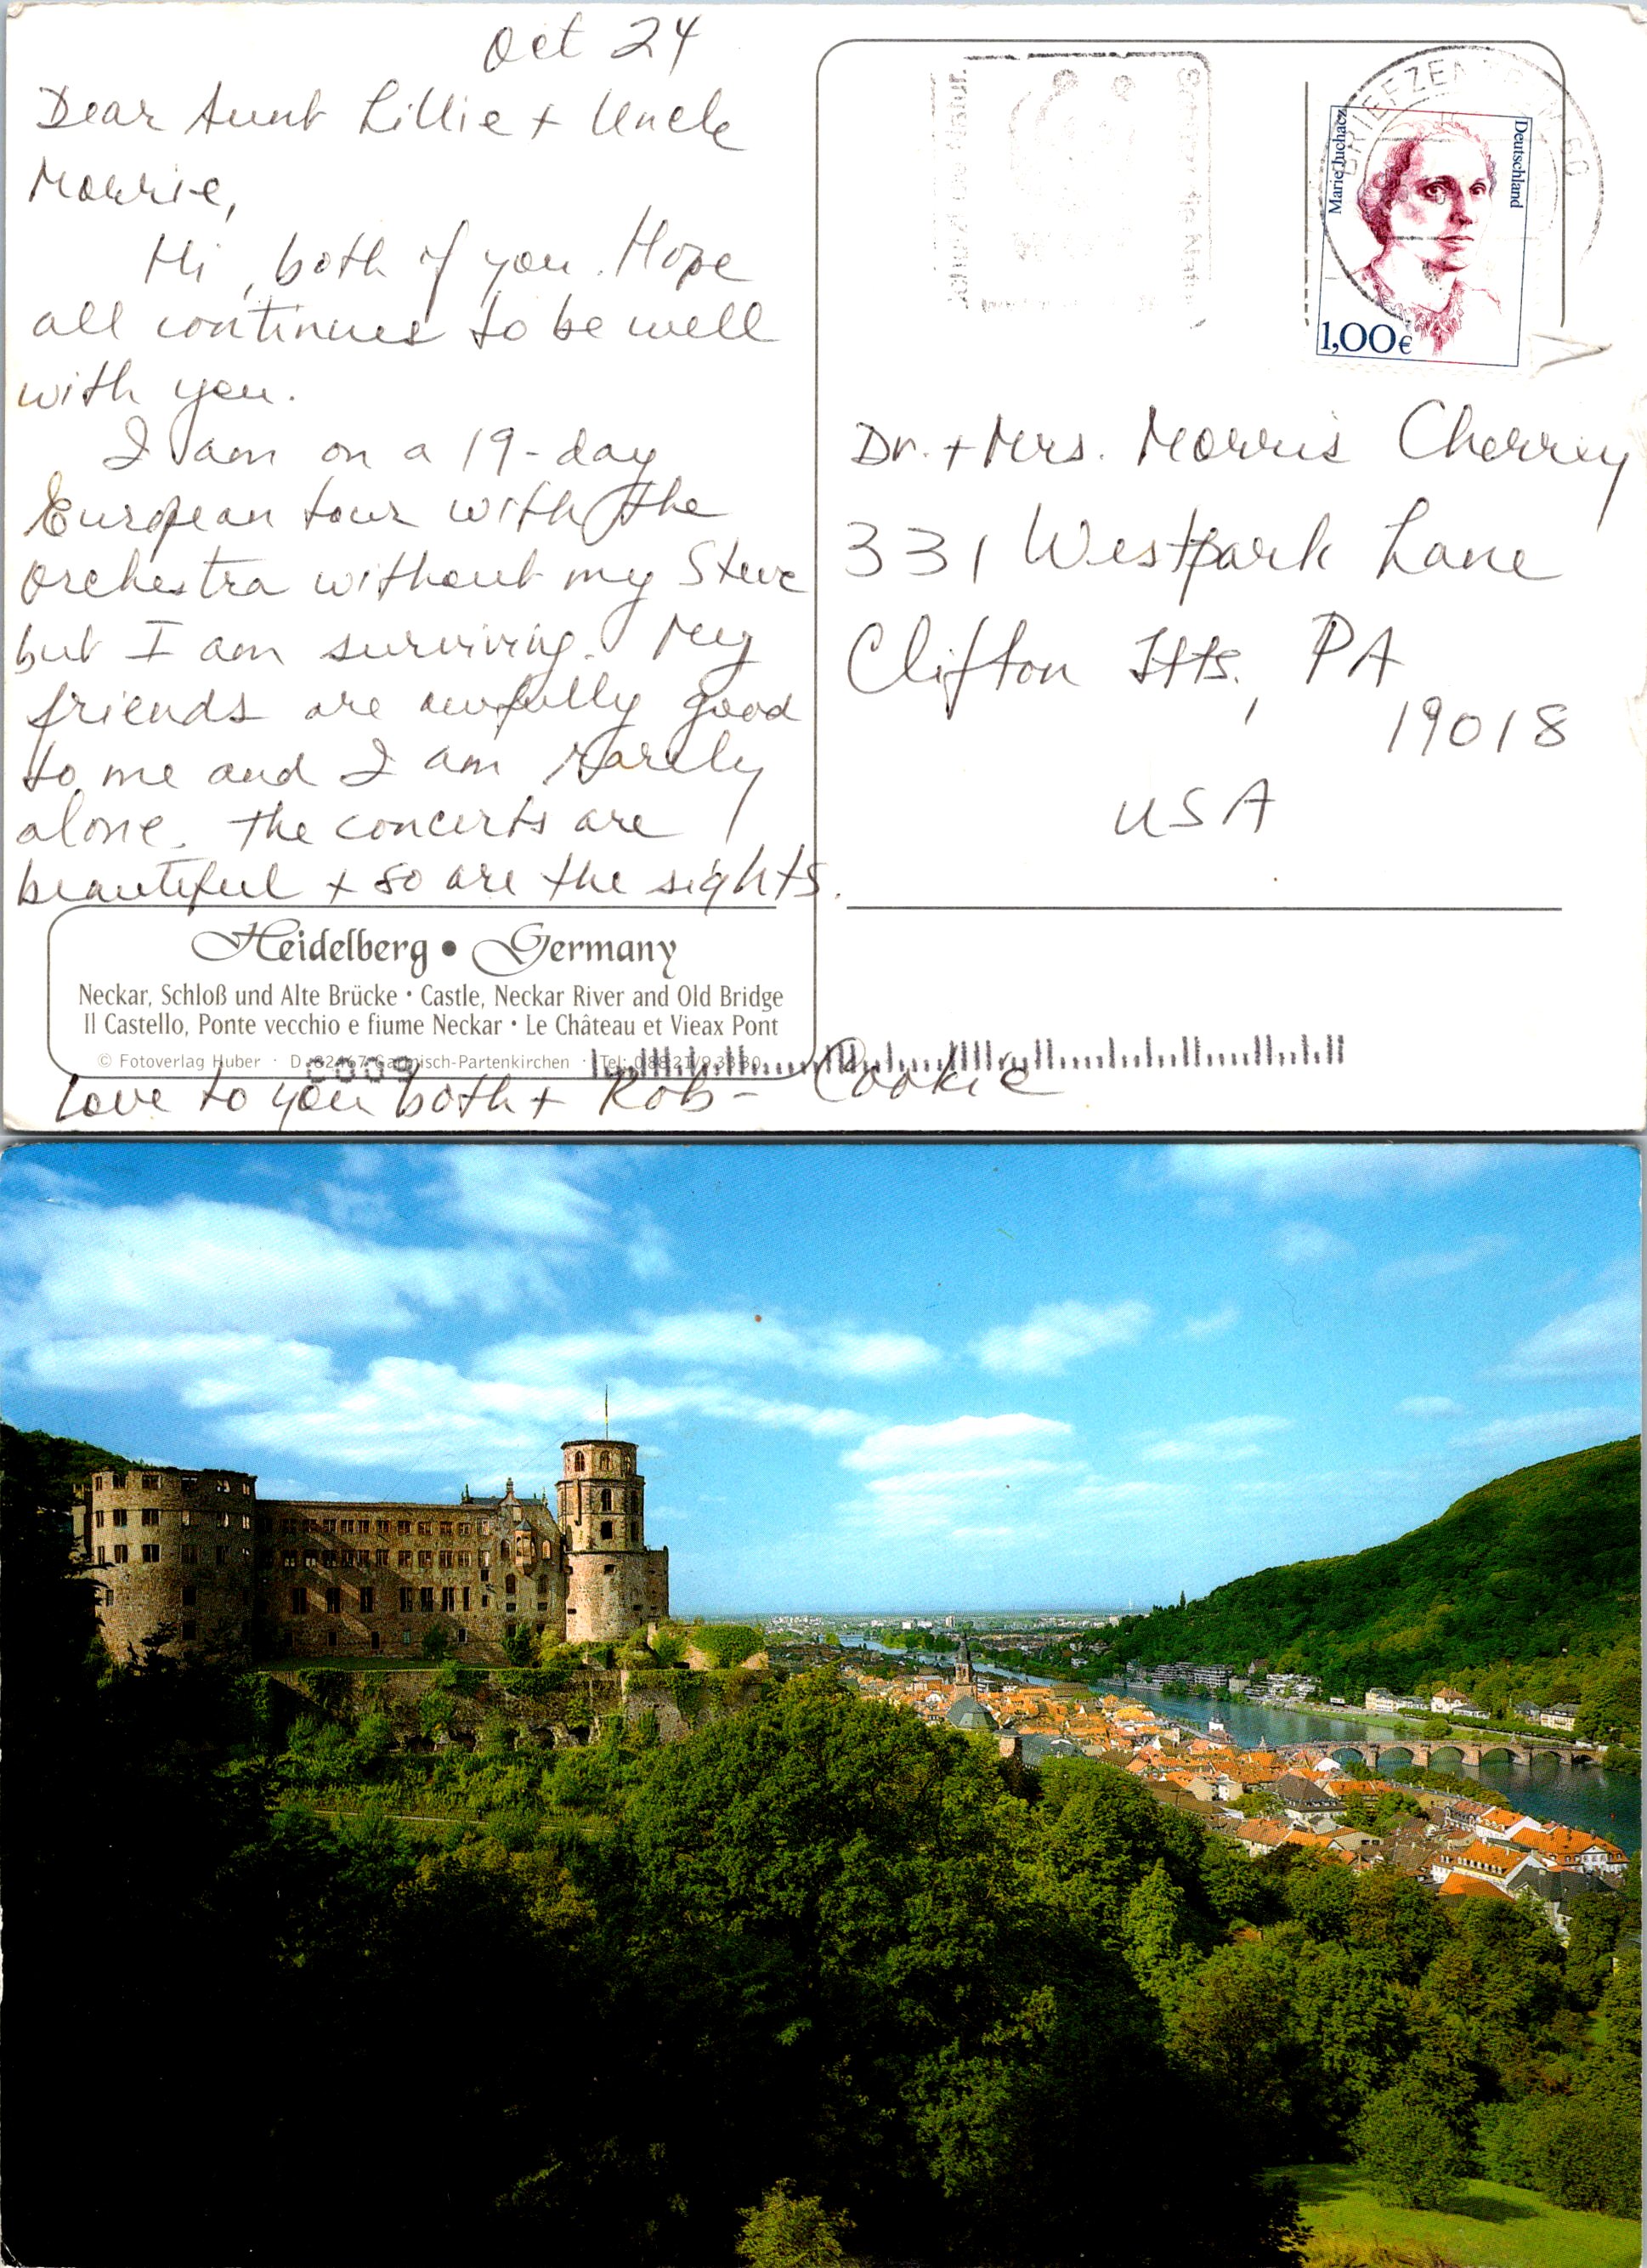 Oct 24
Dear Aunt Lillie + Uncle
Morrie,
Hi, both of you. Hope
all continues to be well
with you.
I am on a 19-day
European tour with the
Orchestra without my Steve
but I am surviving. My
friends are awfully good
to me and I am rarely
alone. The concerts are
beautiful + so are the sights.
Heidelberg • Germany
Neckar, Schloß und Alte Brücke • Castle, Neckar River and Old Bridge
Il Castello, Ponte vecchio e fiume Neckar • Le Château et Vieax Pont
© Fotoverlag Huber · D-82467 Garmisch-Partenkirchen · Tel:
Love to you both + Rob - Cookie
BRIEFZENTRUM 60
Marie Juchacz
Deutschland
1,00€
Dr. + Mrs. Morris Cherrey
331 Westpark Lane
Clifton Hts., PA
19018
USA